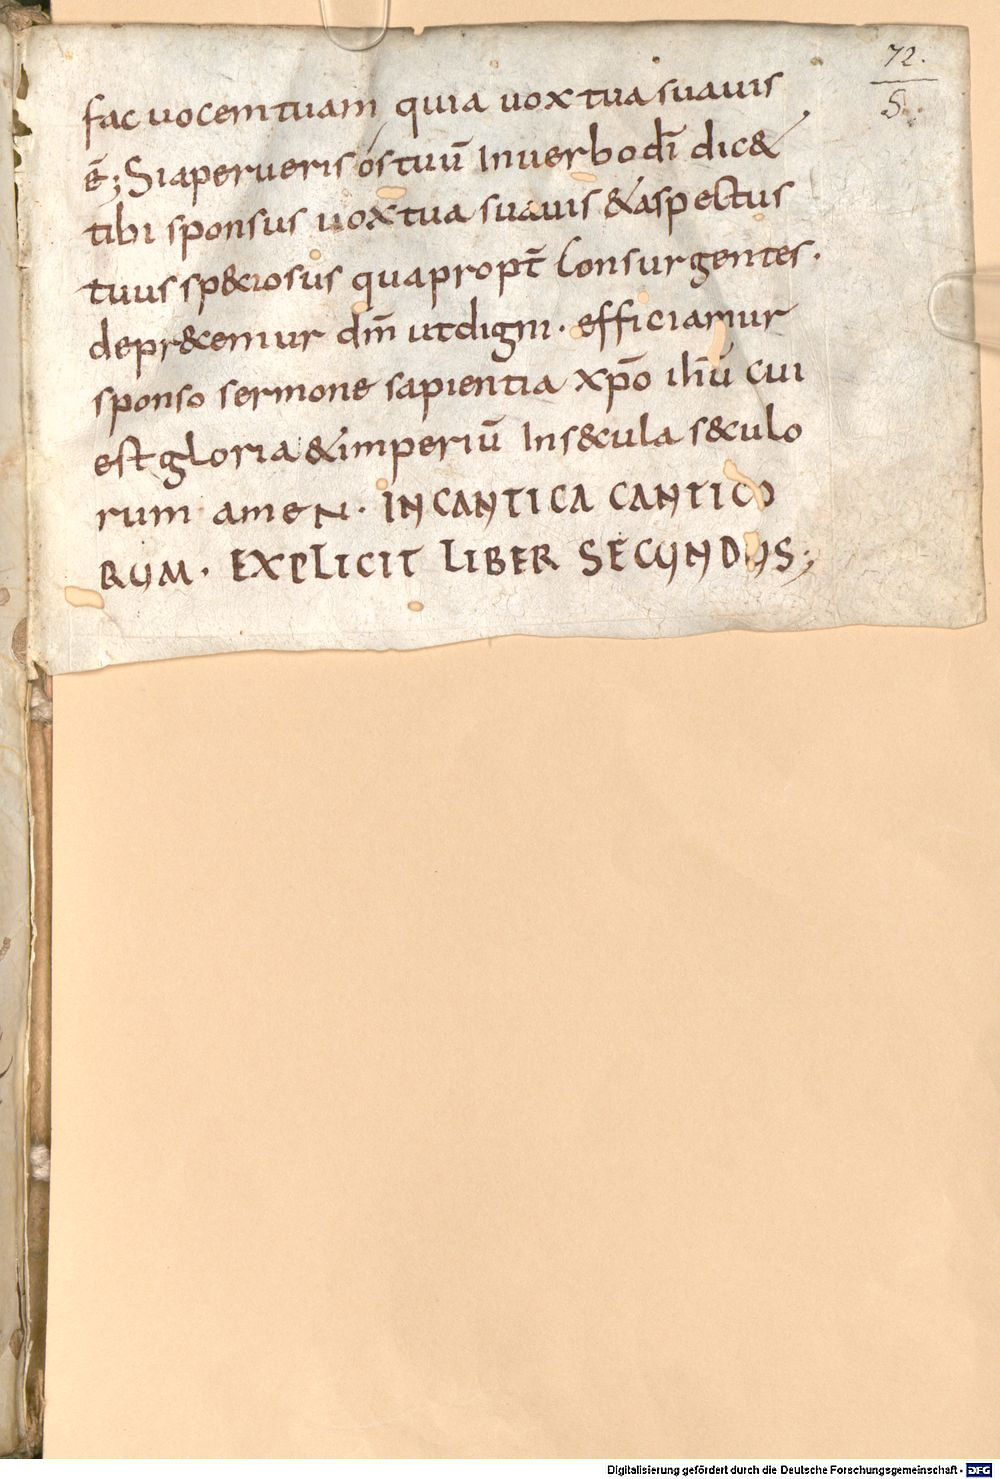 72.
5.
fac uocem tuam quia uox tua suauis
ē; Si aperueris ós tuū In uerbo dī dic&
tibi sponsus uox tua suauis & aspectus
tuus sp&iosus quapropt̄ Consurgentes.
depr&emur dm̄ ut digni. efficiamur
sponso sermone sapientia xp̄o ihū cui
est gloria & imperiū In s&cula s&culo
rum amen. IN CANTICA CANTICO
RUM. EXPLICIT LIBER SECUNDUS;
Digitalisierung gefördert durch die Deutsche Forschungsgemeinschaft - DFG